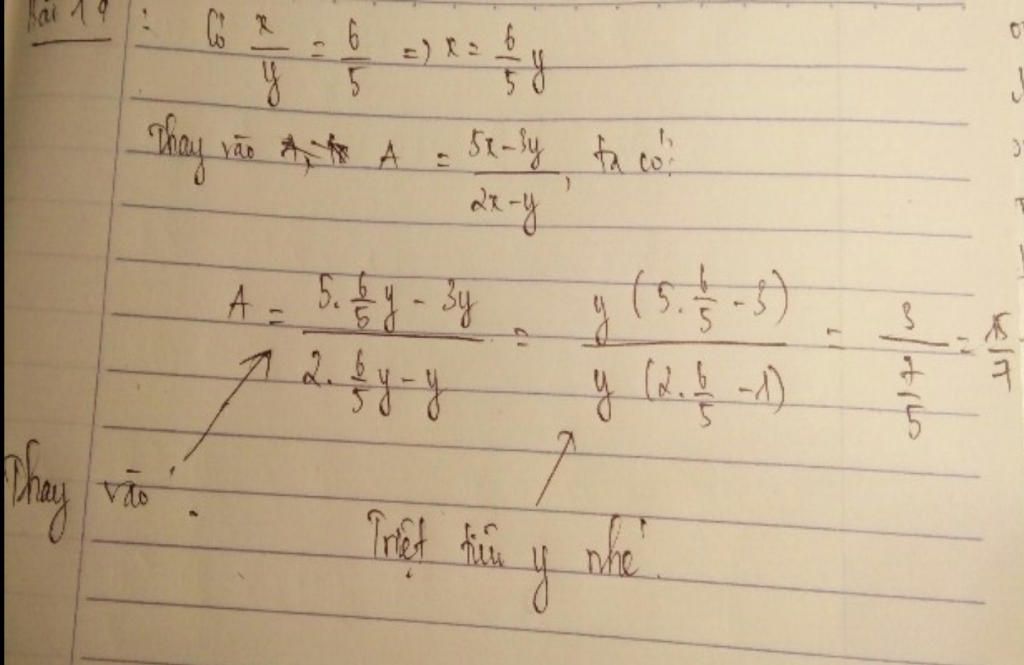 Bài 19 :
Có x/y = 6/5 => x = 6/5 y
Thay vào A = (5x-3y)/(2x-y), ta có:
A = (5.6/5y - 3y)/(2.6/5y - y) = (y(5.6/5 - 3))/(y(2.6/5 - 1)) = 3/(7/5) = 15/7
Thay vào.
Triệt tiêu y nhé.